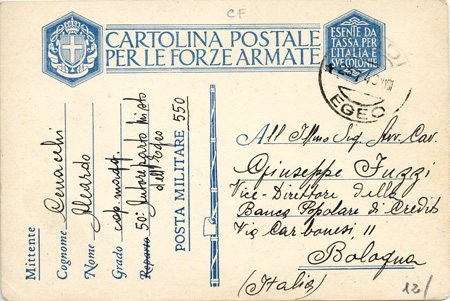 CF
CARTOLINA POSTALE
PER LE FORZE ARMATE
ESENTE DA
TASSA PER
L'ITALIA E
SVE COLONIE
EGEO
Mittente
Cognome Cenacchi
Nome Alcardo
Grado cap. magg.
Reparto 50° Autoreparto misto
dell'Egeo
POSTA MILITARE 550
All' Ill/mo Sig. Avv. Cav.
Giuseppe Fuzzi
Vice-Direttore della
Banca Popolare di Credito
Via Carbonesi, 11
Bologna
(Italia)
12/